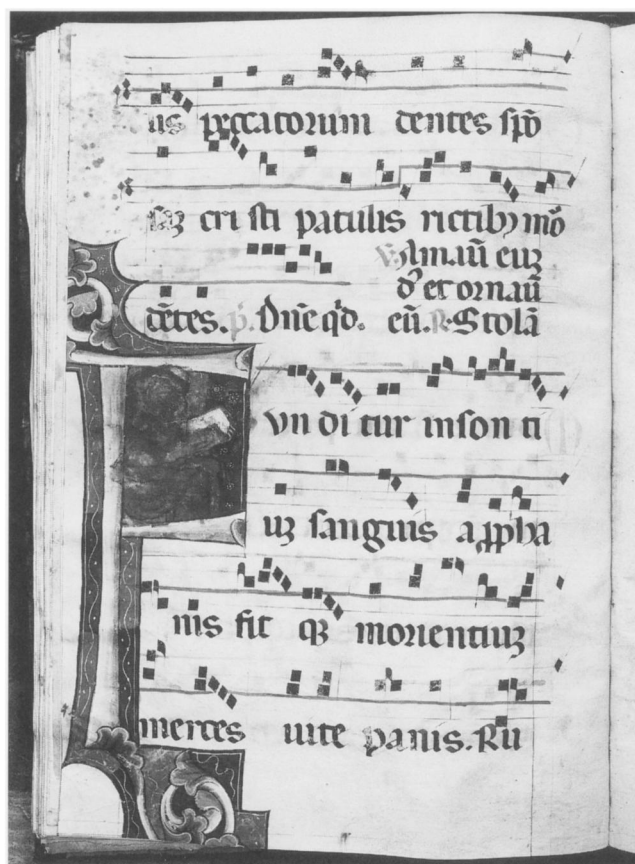 us peccatorum dentes spō
sūz cristi patulis rictibȝ mō
℣. Almaū euȝ
d's et ornaū
dētes. p̄. Dn̄e q̄d. eū. ℟. Stolā
Fvnditur insonti
uȝ sanguis a prppha
nis fit qȝ morientiuȝ
merces uite panis. Ru